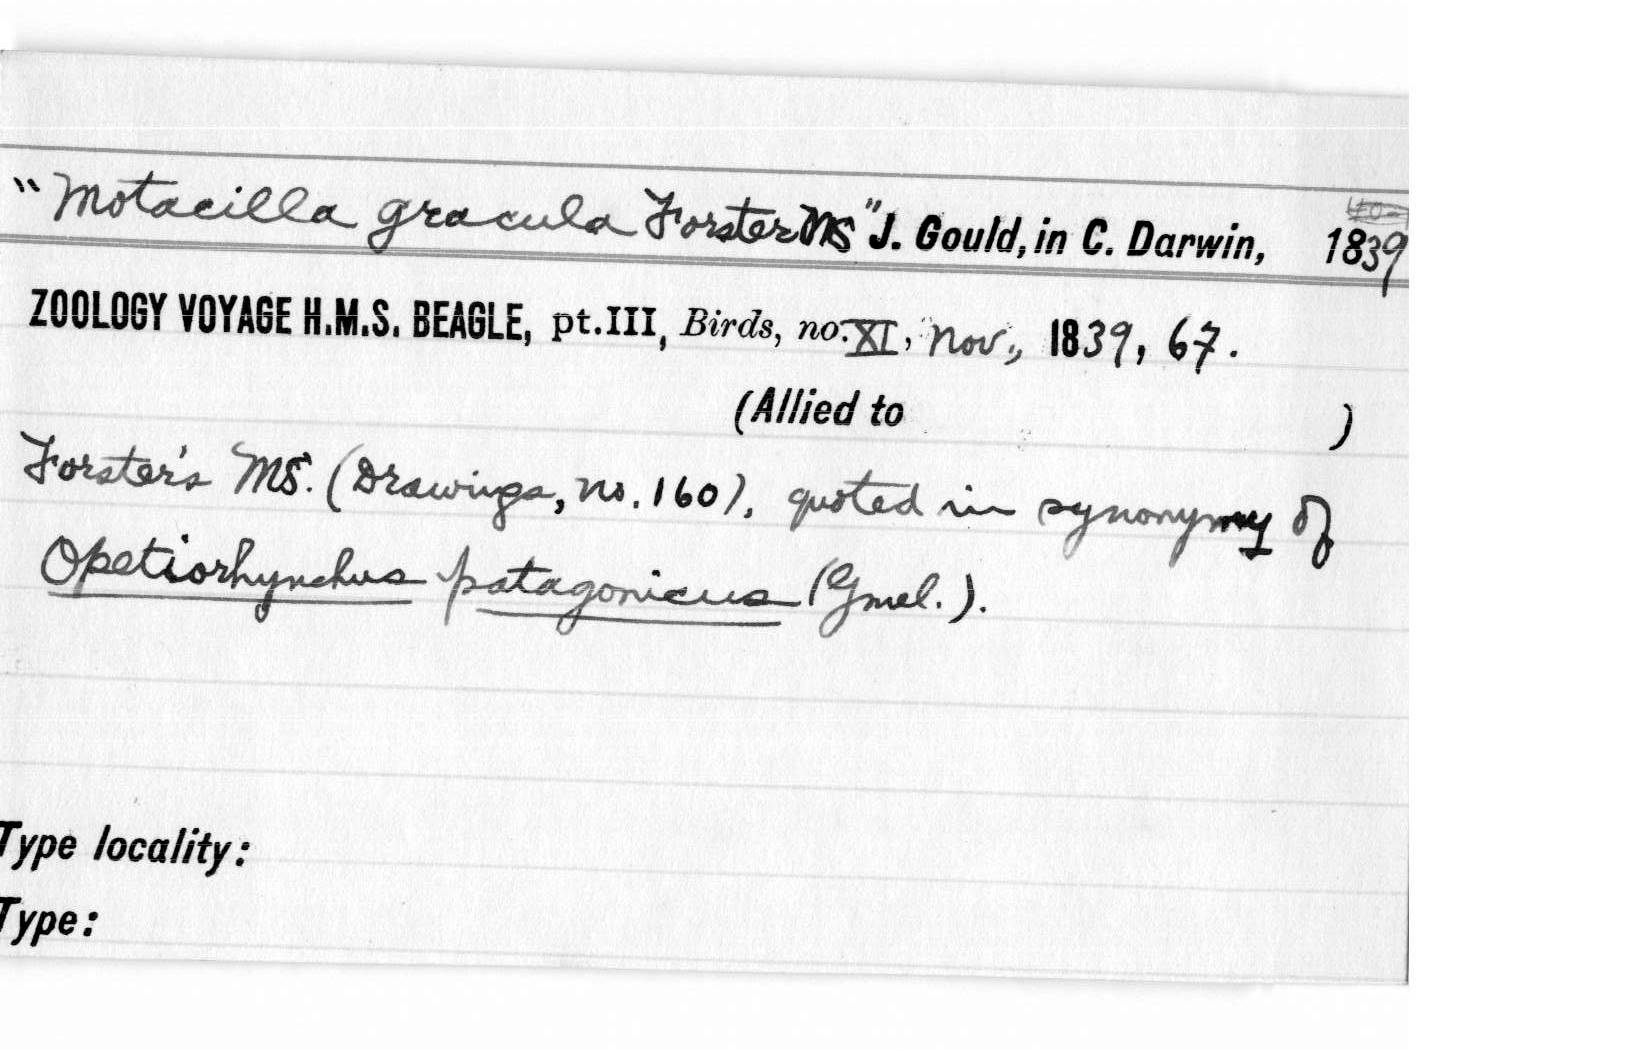 "Motacilla gracula Forster MS" J. Gould, in C. Darwin, 1839
ZOOLOGY VOYAGE H.M.S. BEAGLE, pt.III, Birds, no.XI, Nov., 1839, 67.
(Allied to )
Forster's MS. (Drawings, no. 160), quoted in synonymy of
Opetiorhynchus patagonicus (Gmel.).
Type locality:
Type: